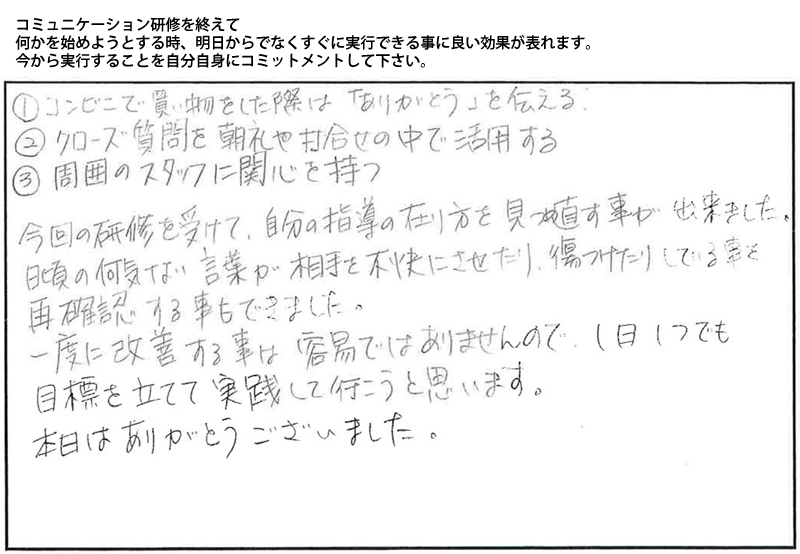 コミュニケーション研修を終えて
何かを始めようとする時、明日からでなくすぐに実行できる事に良い効果が表れます。
今から実行することを自分自身にコミットメントして下さい。
① コンビニで買い物をした際は「ありがとう」を伝える.
② クローズ質問を朝礼や打合せの中で活用する
③ 周囲のスタッフに関心を持つ
今回の研修を受けて、自分の指導の在り方を見つめ直す事が出来ました。
日頃の何気ない言葉が相手を不快にさせたり、傷つけたりしている事を
再確認する事もできました。
一度に改善する事は容易ではありませんので、1日1つでも
目標を立てて実践して行こうと思います。
本日はありがとうございました。